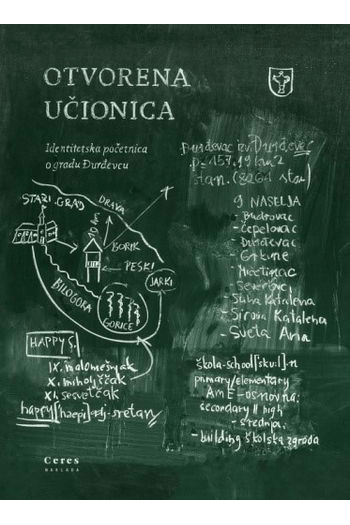 OTVORENA
UČIONICA
Identitetska početnica
o gradu Đurđevcu
Đurđevac
p = 157,19 km2
stan. (8264 stan)
STARI GRAD
DRAVA
BORIK
PESKI
JARKI
BILOGORA
GORICE
9 NASELJA
- Budrovac
- Čepelovac
- Đurđevac
- Grkine
- Mičetinac
- Severovci
- Suha Katalena
- Sirova Katalena
- Sveta Ana
HAPPY S.
IX. malomešnjak
X. miholjščak
XI. sesvetčak
happy [hæpi] adj - sretan
škola - school [sku:l] - n
primary/elementary
AmE - osnovna;
secondary || high
- srednja;
- building školska zgrada
Ceres
NAKLADA